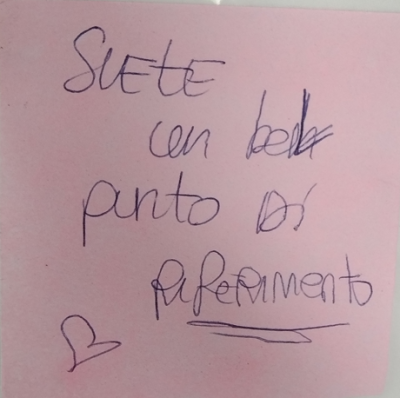 SIETE
un bel
punto Di
RiFeRiMento